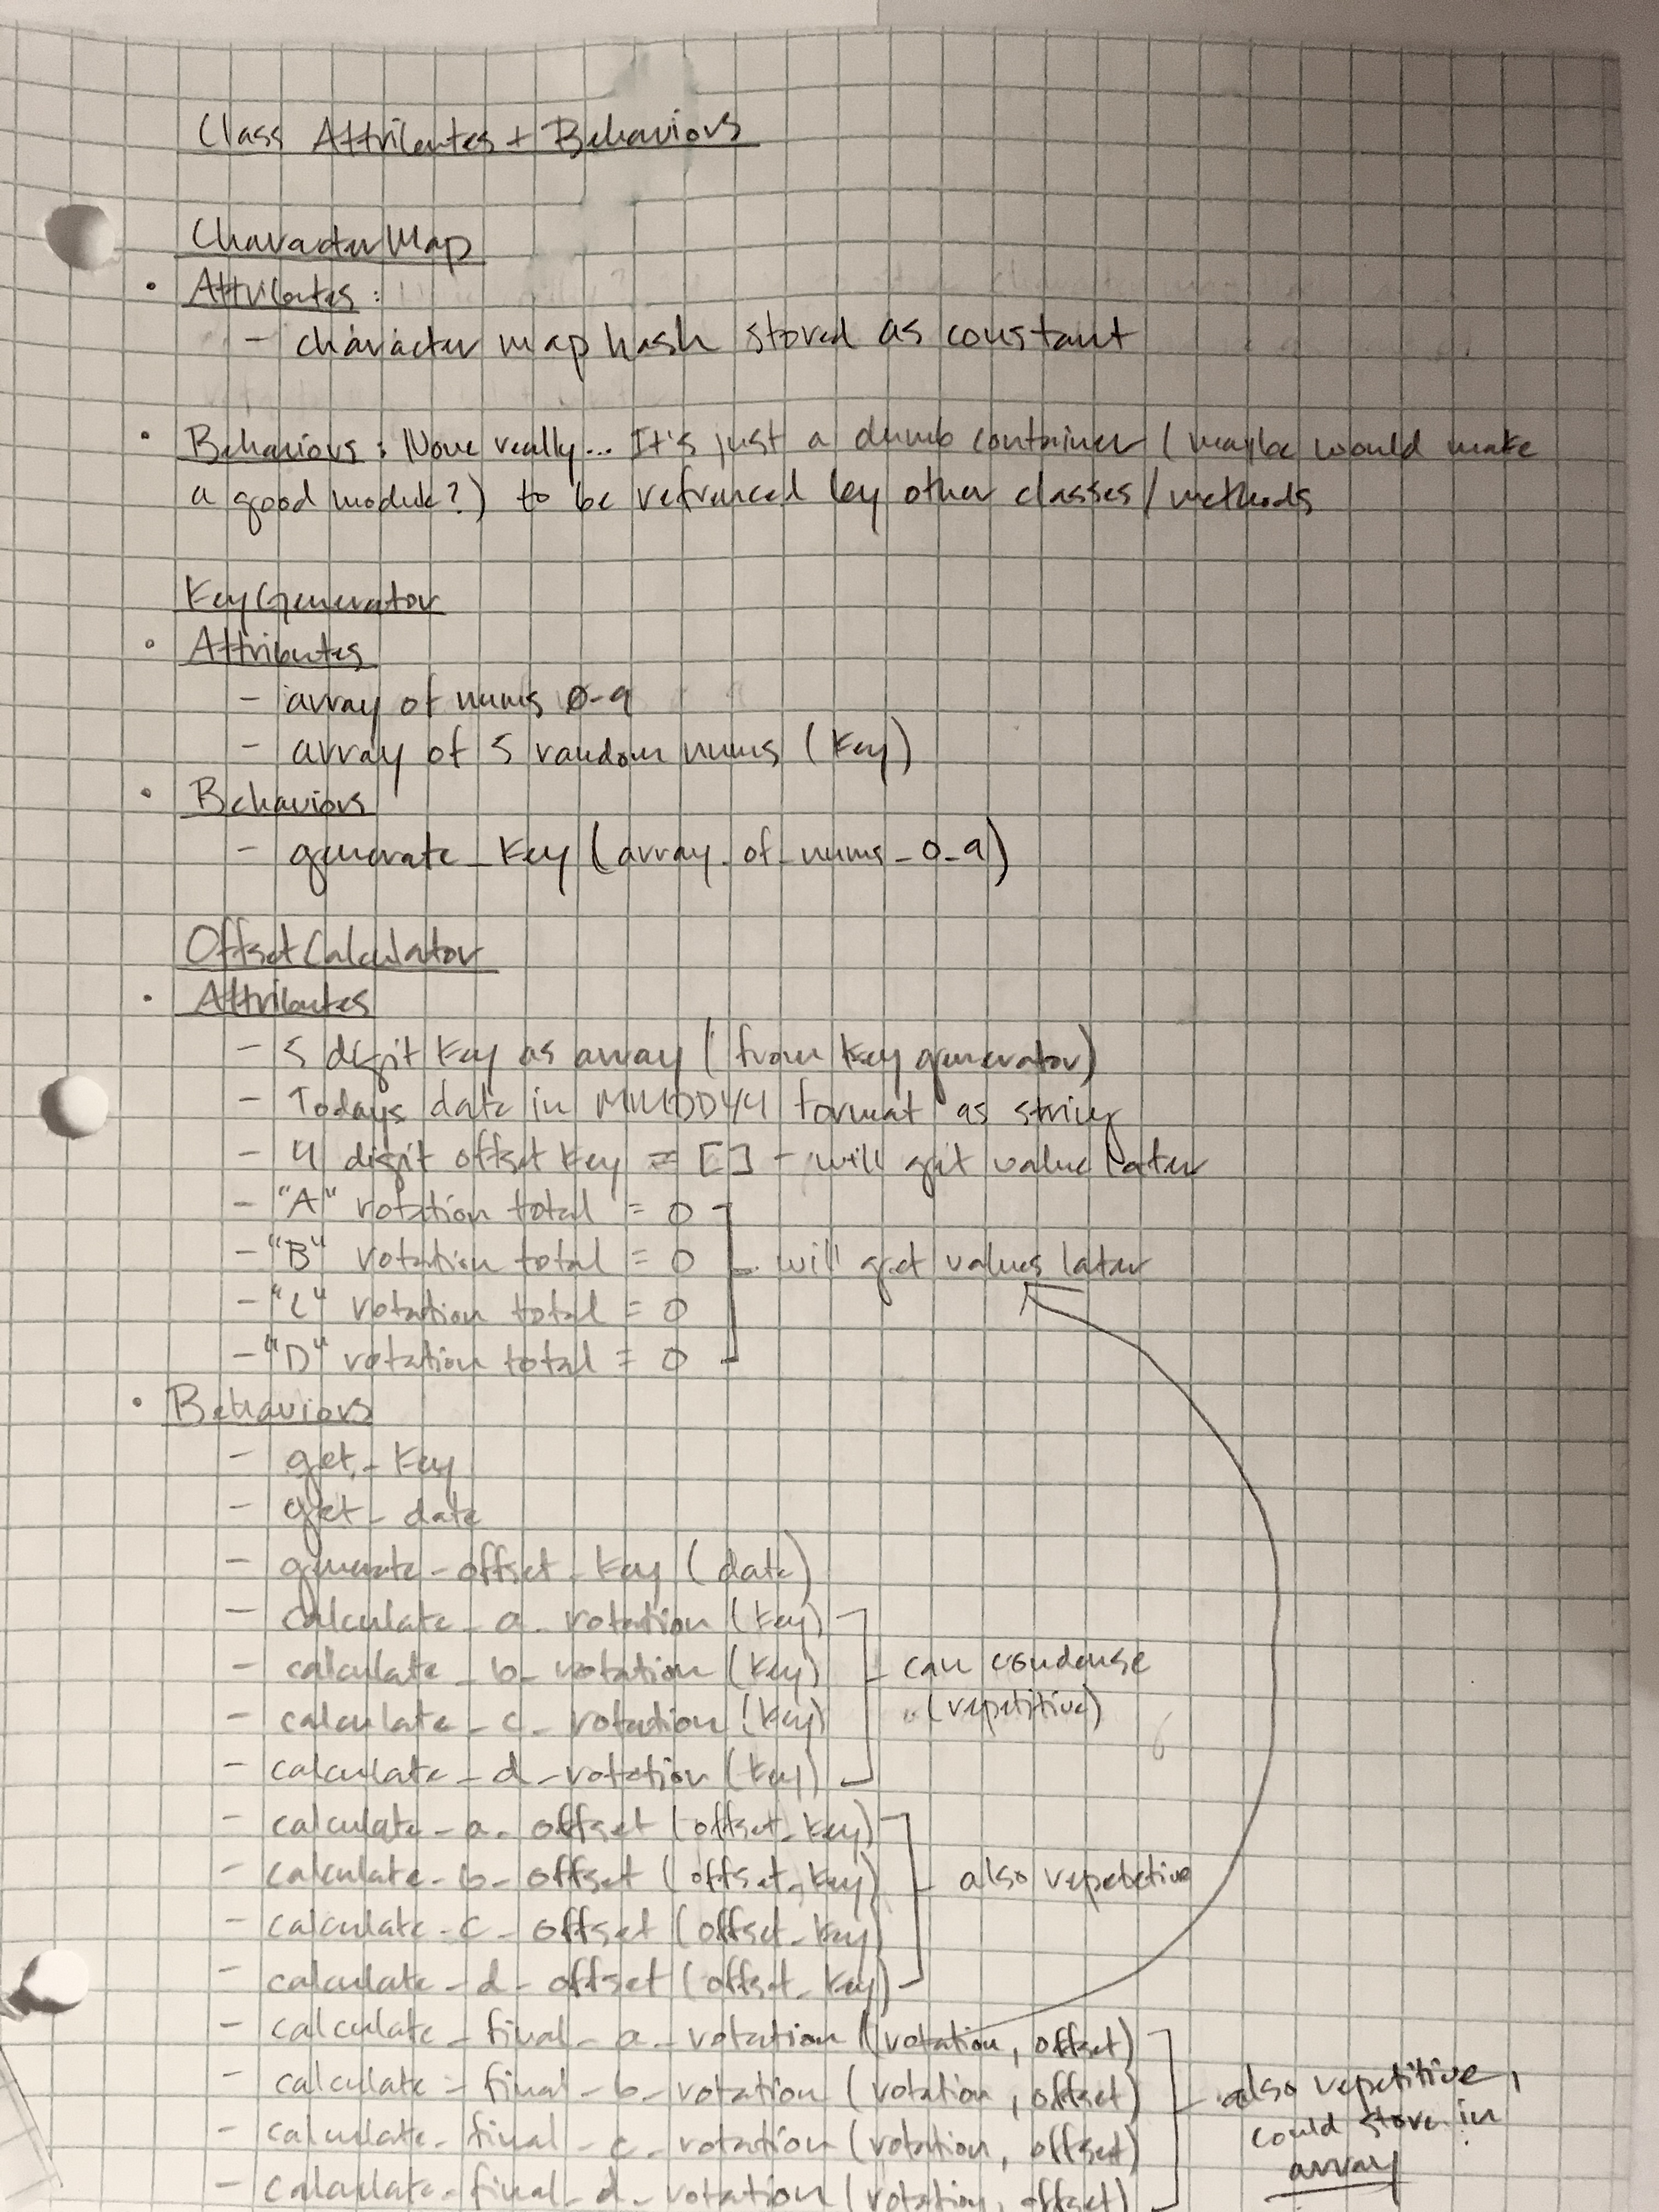 Class Attributes + Behaviors
CharacterMap
• Attributes:
- character map hash stored as constant
• Behaviors: None really... It's just a dumb container (maybe would make
a good module?) to be refrenced by other classes/methods
KeyGenerator
• Attributes
- array of nums 0-9
- array of 5 random nums (key)
• Behaviors
- generate_key (array_of_nums_0_9)
OffsetCalculator
• Attributes
- 5 digit key as array (from key generator)
- Todays date in MMDDYY format as string
- 4 digit offset key = [] - will get value later
- "A" rotation total = 0
- "B" rotation total = 0 will get values later
- "C" rotation total = 0
- "D" rotation total = 0
• Behaviors
- get_key
- get_date
- generate_offset_key (date)
- calculate_a_rotation (key)
- calculate_b_rotation (key) can condense
- calculate_c_rotation (key) (repetitive)
- calculate_d_rotation (key)
- calculate_a_offset (offset_key)
- calculate_b_offset (offset_key) also repetetive
- calculate_c_offset (offset_key)
- calculate_d_offset (offset_key)
- calculate_final_a_rotation (rotation, offset)
- calculate_final_b_rotation (rotation, offset) also repetitive,
- calculate_final_c_rotation (rotation, offset) could store in
- calculate_final_d_rotation (rotation, offset) array